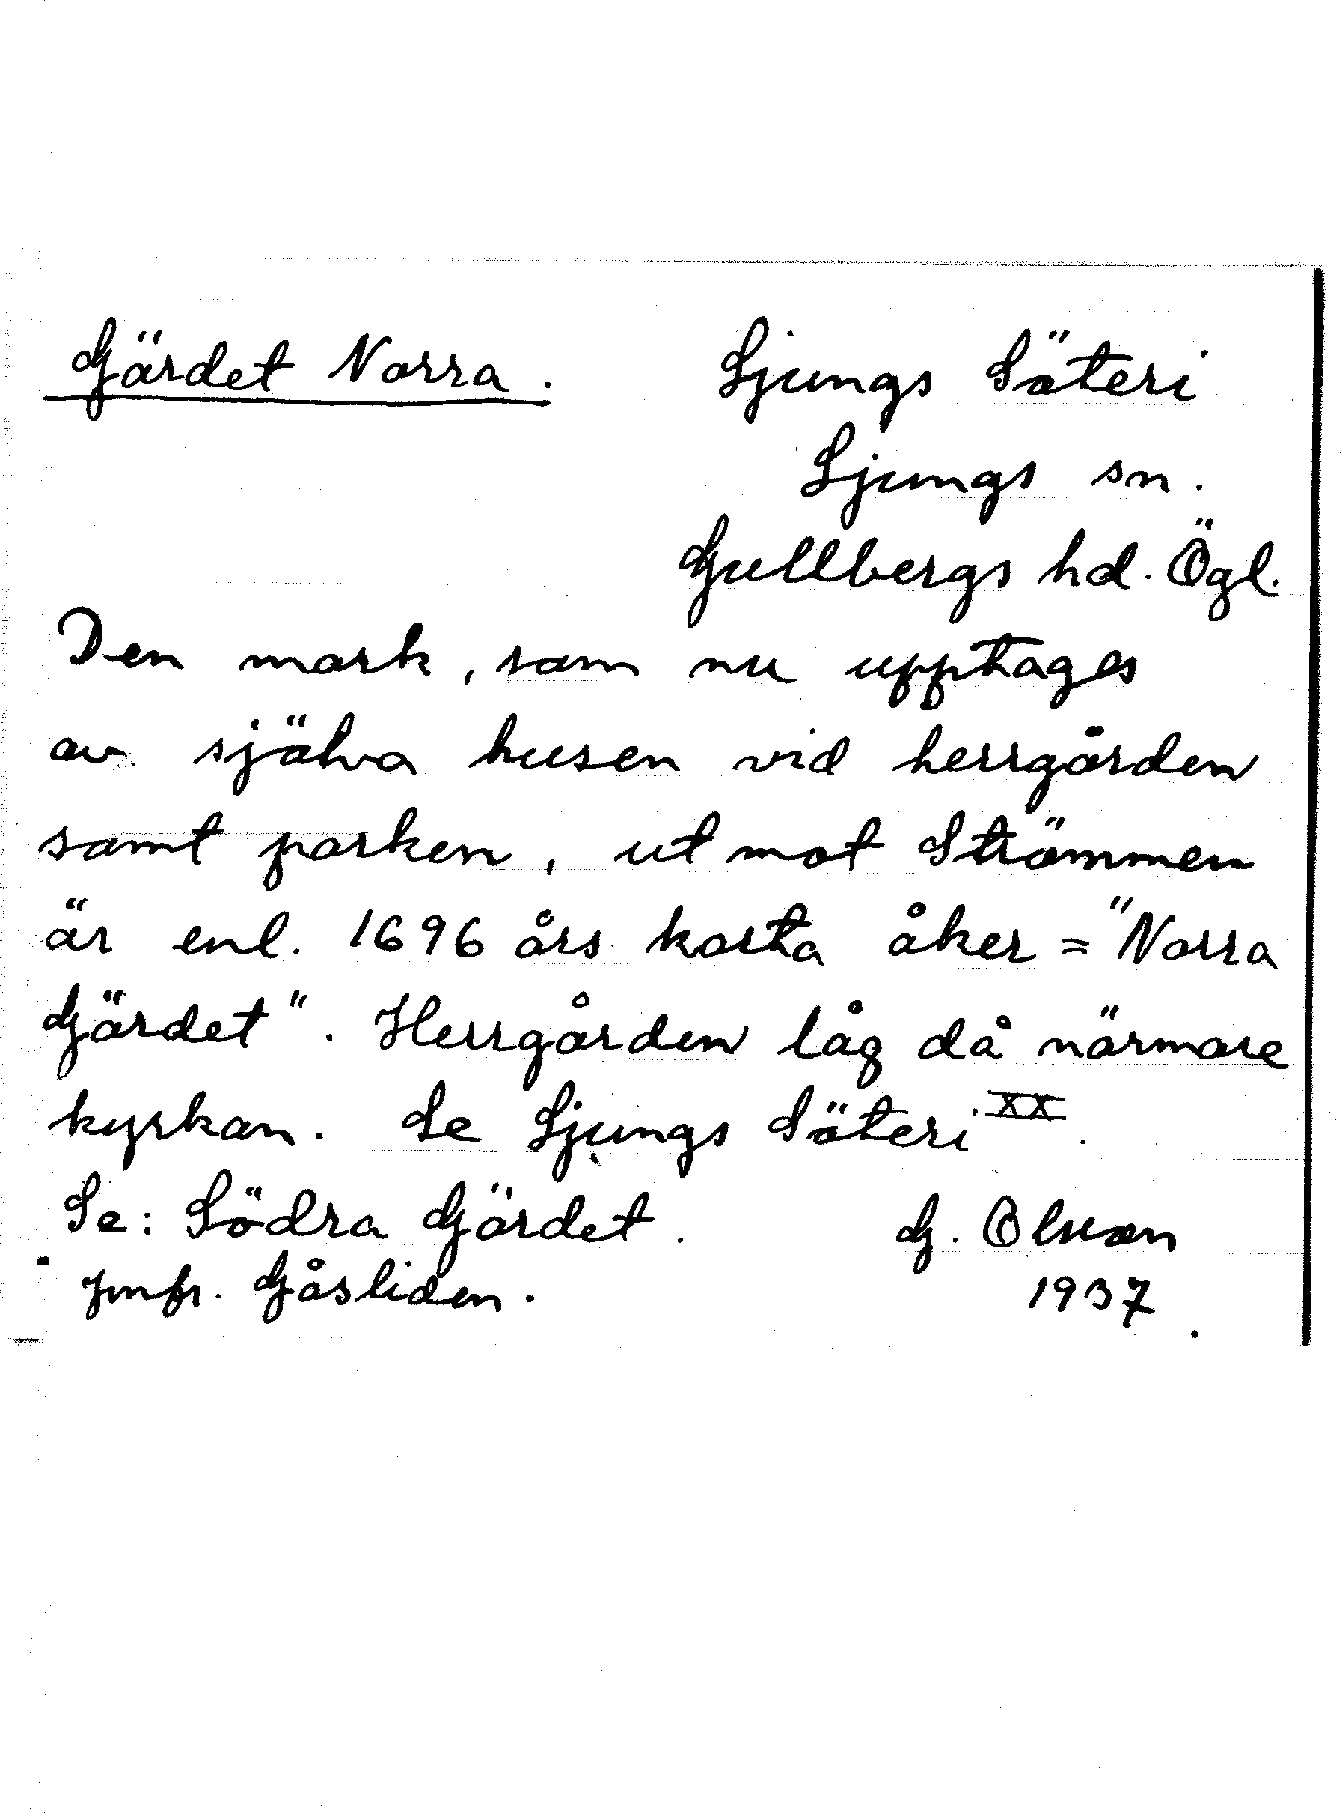 Gärdet Norra.
Ljungs Säteri
Ljungs sn.
Gullbergs hd. Ögl.
Den mark, som nu upptages
av själva husen vid herrgården
samt parken, ut mot Strömmen
är enl. 1696 års karta åker = "Norra
Gärdet". Herrgården låg då närmare
kyrkan. Se Ljungs Säteri XX.
Se: Södra Gärdet. G. Olsson
Jmfr. Gåsliden. 1937